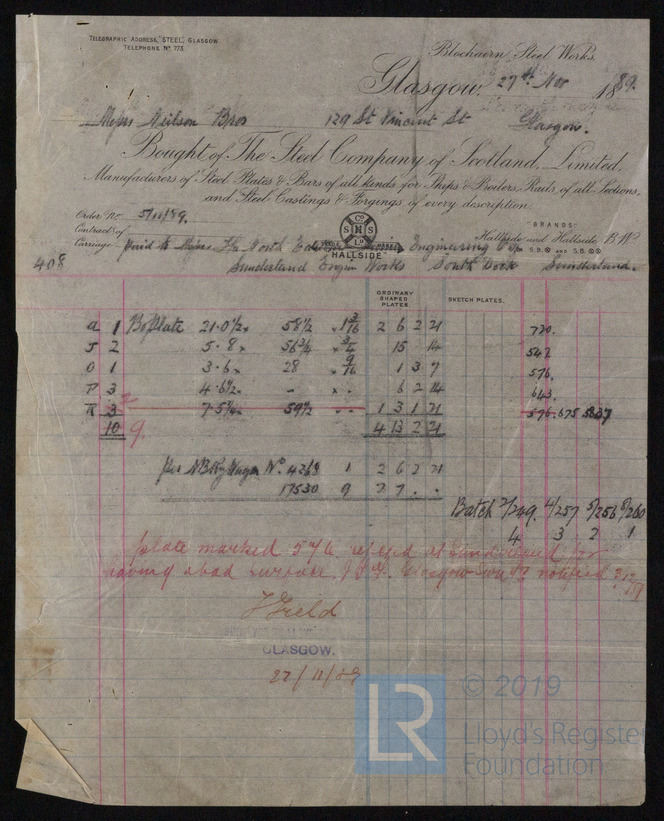 TELEGRAPHIC ADDRESS, "STEEL", GLASGOW
TELEPHONE Nº 773.
Blochairn Steel Works.
Glasgow, 27th Nov 1889.
Messrs Neilson Bros 129 St Vincent St Glasgow.
Bought of The Steel Company of Scotland, Limited,
Manufacturers of Steel Plates & Bars of all kinds for Ships & Boilers, Rails of all Sections,
and Steel Castings & Forgings of every description.
Order No 5/11/89.
Contract of
BRANDS:
Hallside and Hallside B W
S.B. AND S.B.
Cº
S H S
Lº
HALLSIDE
Carriage paid to Messrs The North Eastern Marine Engineering Co
408 Sunderland Engine Works South Dock Sunderland.
ORDINARY SHAPED PLATES.
SKETCH PLATES.
a 1 Bo Plate 21.0½ x 58½ x 1 3/16 2 6 2 21 720.
J 2 5.8 x 56¾ x ¾ 15 14 542
O 1 3.6 x 28 x 9/16 1 3 7 576.
P 3 4.6½ x - x . 6 2 14 643.
R 3 2 7.5¾ x 59½ . . 1 3 1 21 576.675 5837
10 9. 4 13 2 21
per NBRy Wagon Nº 4269 1 2 6 2 21
17530 9 2 7 . .
Batch 2/249. 4/257 5/256 8/260
4 3 2 1
plate marked 576 rejected at Sunderland for
having a bad surface. Glasgow notified
J Field
GLASGOW.
27/11/89
LR
© 2019
Lloyd's Register
Foundation